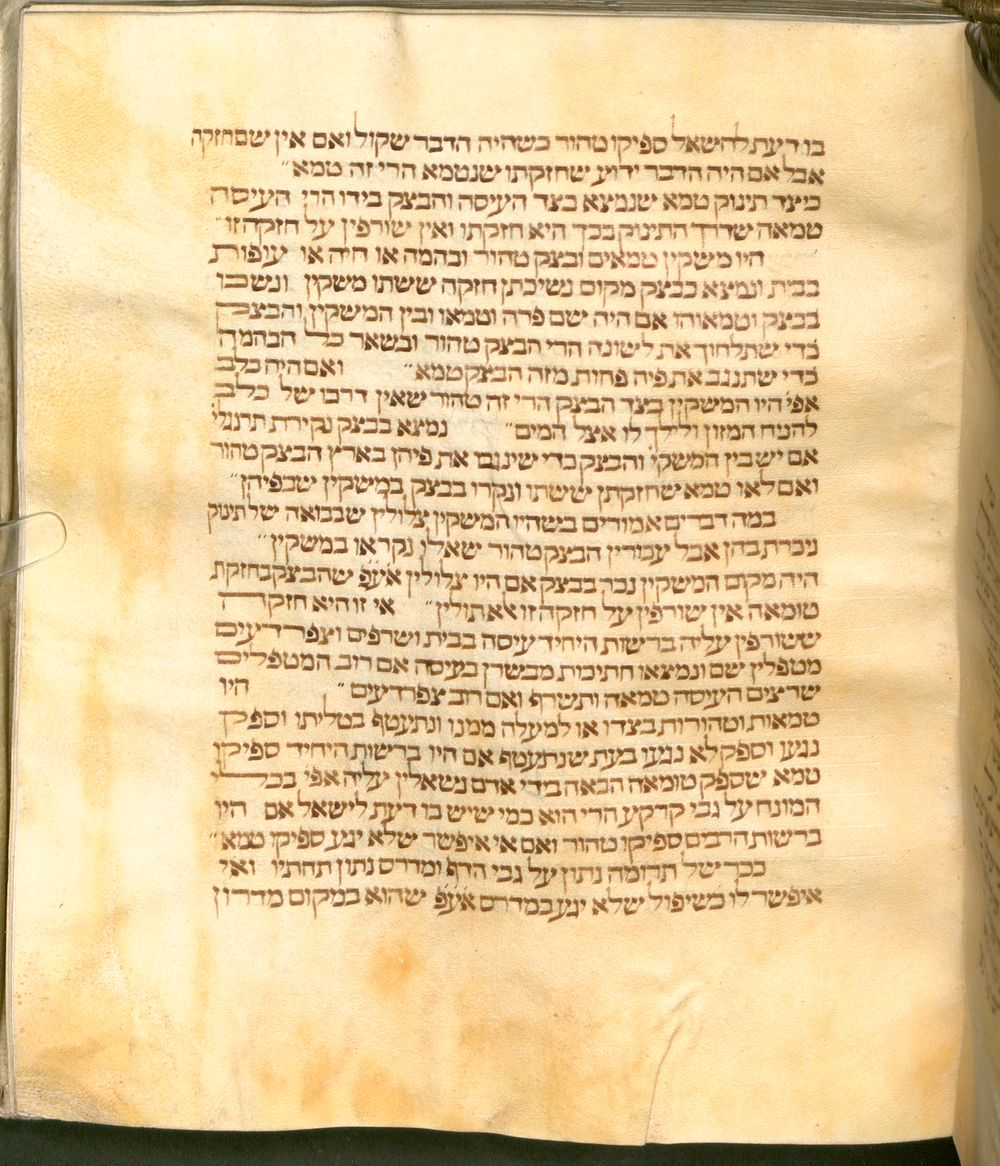 בו דעת להשאל ספיקו טהור כשהיה הדבר שקול ואם אין שם חזקה
אבל אם היה הדבר ידוע שחזקתו שנטמא הרי זה טמא״
כיצד תינוק טמא שנמצא בצד העיסה והבצק בידו הרי העיסה
טמאה שדרך התינוק בכך היא חזקתו ואין שורפין על חזקה זו״
היו משקין טמאים ובצק טהור ובהמה או חיה או עופות
בבית ונמצא בבצק מקום נשיכתן חזקה ששתו משקין ונשכו
בבצק וטמאוהו אם היה שם פרה וטמאו ובין המשקין והבצק
כדי שתלחוך את לשונה הרי הבצק טהור ובשאר כל הבהמה
כדי שתנגב את פיה פחות מזה הבצק טמא״ ואם היה כלב
אפי היו המשקין בצד הבצק הרי זה טהור שאין דרכו של כלב
להניח המזון ולילך לו אצל המים״ נמצא בבצק נקירת תרנגלי
אם יש בין המשקי והבצק כדי שינגבו את פיהן בארץ הבצק טהור
ואם לאו טמא שחזקתן ששתו ונקרו בבצק במשקין שבפיהן״
במה דברים אמורים בשהיו המשקין צלולין שבבואה של תינוק
ניכרת בהן אבל עכורין הבצק טהור שאלו נקראו במשקין״
היה מקום המשקין נכר בבצק אם היו צלולין אעפ שהבצק בחזקת
טומאה אין שורפין על חזקה זו אלא תולין״ אי זו היא חזקה
ששורפין עליה ברשות היחיד עיסה בבית ושרצים וצפרדעים
מטפלין שם ונמצאו חתיכות מבשרן בעיסה אם רוב המטפלים
שרצים העיסה טמאה ותשרף ואם רוב צפרדעים״ היו
טמאות וטהורות בצדו או למעלה ממנו ונתעטף בטליתו וספק
נגעו וספק לא נגעו בעת שנתעטף אם היו ברשות היחיד ספיקן
טמא שספק טומאה הבאה בידי אדם נשאלין עליה אפי בכלי
המונח על גבי קרקע הרי הוא כמי שיש בו דעת לישאל אם היו
ברשות הרבים ספיקו טהור ואם אי איפשר שלא יגע ספיקו טמא״
ככר של תרומה נתון על גבי הדף ומדרס נתון תחתיו ואי
איפשר לו כשיפול שלא יגע במדרס אעפ שהוא במקום מדרון